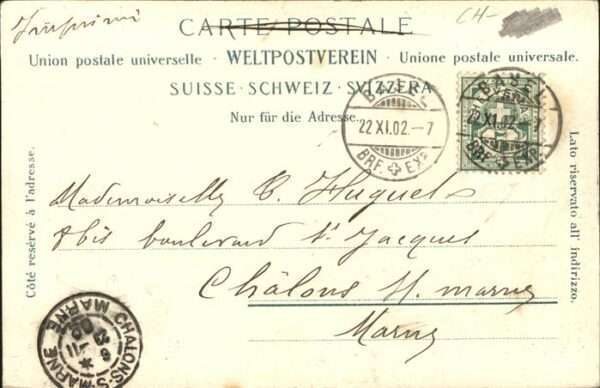 Imprimé
CH-
CARTE POSTALE
Union postale universelle · WELTPOSTVEREIN · Unione postale universale.
SUISSE · SCHWEIZ · SVIZZERA
Nur für die Adresse.
BASEL
22 XI. 02. – 7
BRF. EXP.
BASEL
22 XI. 02. – 7
BRF. EXP.
Côté reservé à l'adresse.
Lato riservato all' indirizzo.
Mademoiselle C. Huguet
8 bis boulevard St Jacques
Châlons s/. marne
Marne
CHALONS-S-MARNE
MARNE